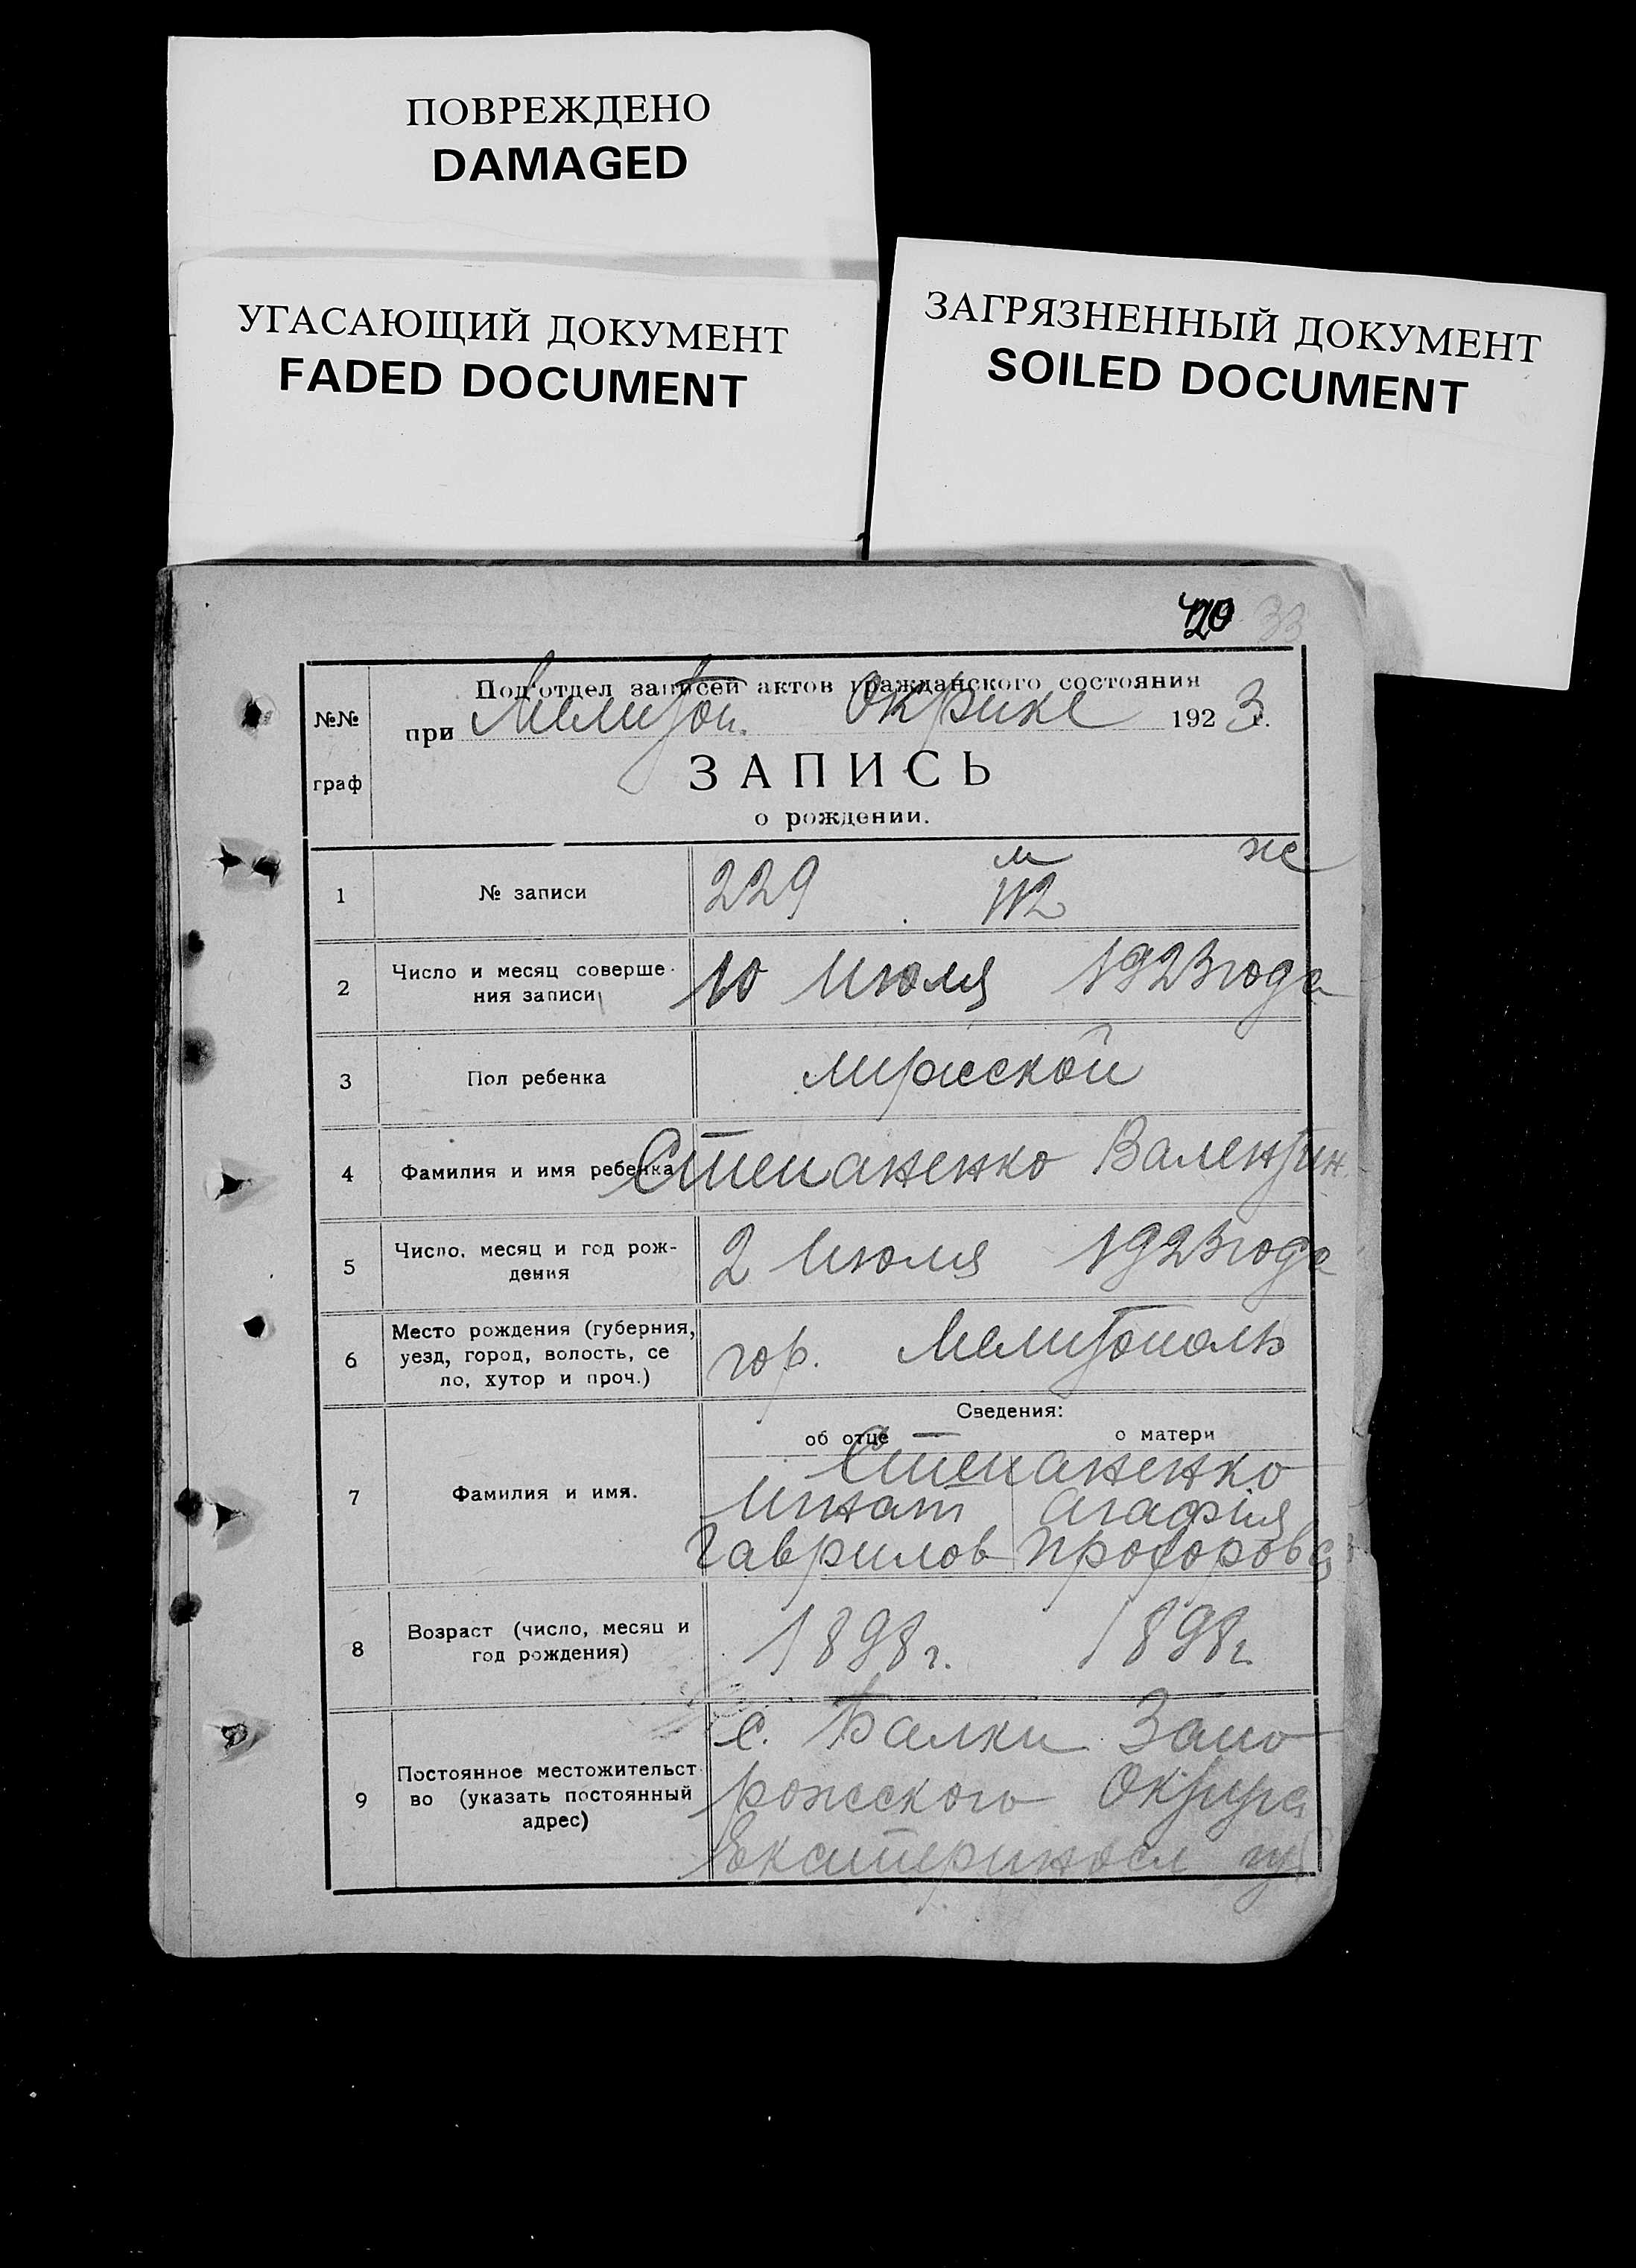 ПОВРЕЖДЕНО
DAMAGED
УГАСАЮЩИЙ ДОКУМЕНТ
FADED DOCUMENT
ЗАГРЯЗНЕННЫЙ ДОКУМЕНТ
SOILED DOCUMENT
33
№№
граф
Подотдел записей актов гражданского состояния
при Мелитоп. Окрике 1923 г.
ЗАПИСЬ
о рождении.
м ж
1 № записи 229 112
2 Число и месяц соверше-
ния записи 10 Июля 1923 года
3 Пол ребенка мужской
4 Фамилия и имя ребенка Степаненко Валентин
5 Число, месяц и год рож-
дения 2 Июля 1923 года
6 Место рождения (губерния,
уезд, город, волость, се
ло, хутор и проч.) гор. Мелитополь
Сведения:
об отце о матери
7 Фамилия и имя. Степаненко
Игнат Агафия
Гаврилов Прохоровa
8 Возраст (число, месяц и
год рождения) 1898 г. 1898 г.
9 Постоянное местожительст
во (указать постоянный
адрес) с. Балки Запо
рожского Округа
Екатериносл губ